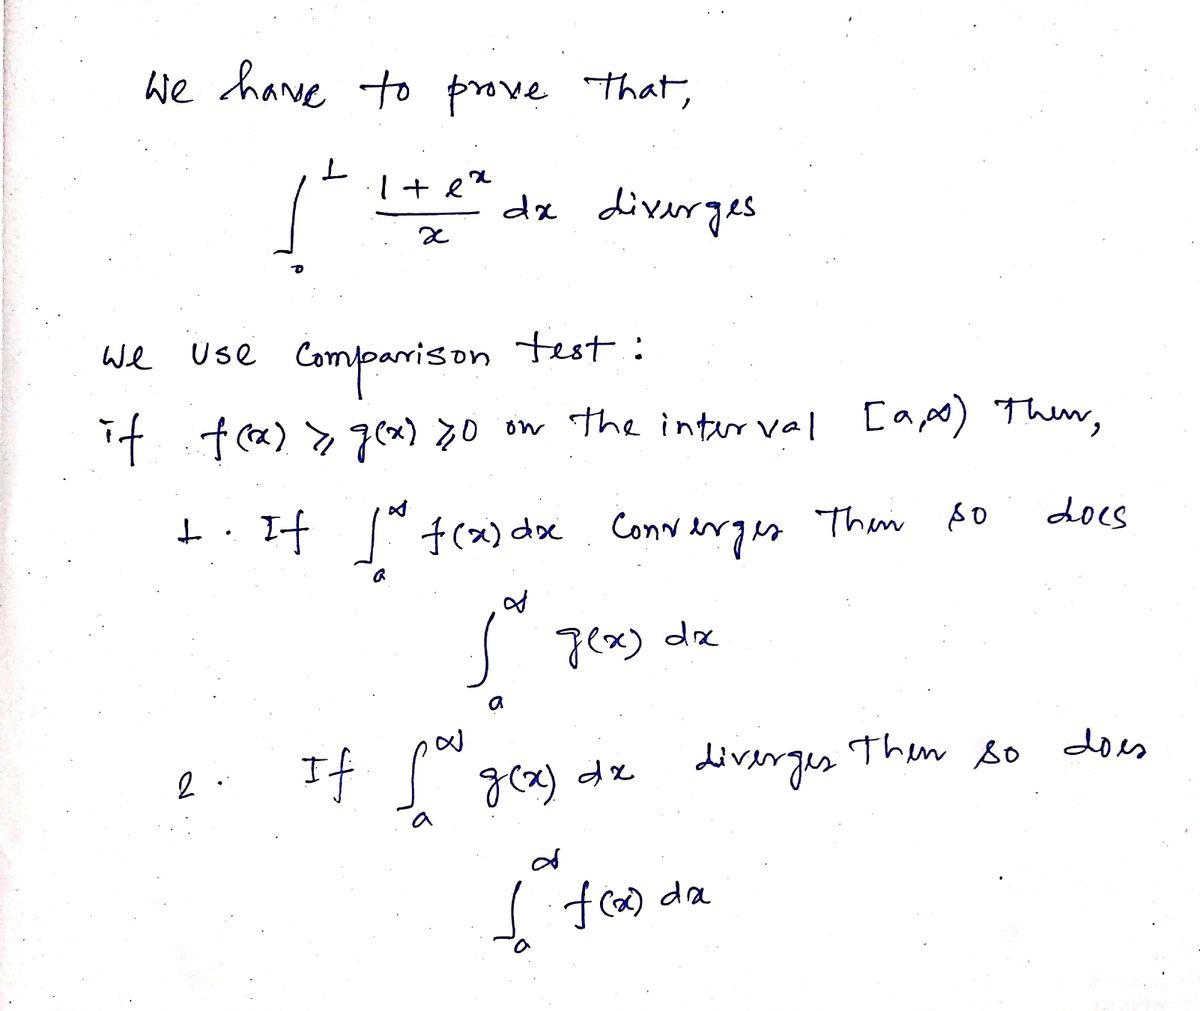 We have to prove that,
∫₀¹ (1 + eˣ)/x dx diverges
We use Comparison test :
if f(x) ⩾ g(x) ⩾0 on the interval [a,∞) Then,
1. If ∫ₐ^∞ f(x) dx Converges Then so does
∫ₐ^∞ g(x) dx
2. If ∫ₐ^∞ g(x) dx diverges Then so does
∫ₐ^∞ f(x) dx